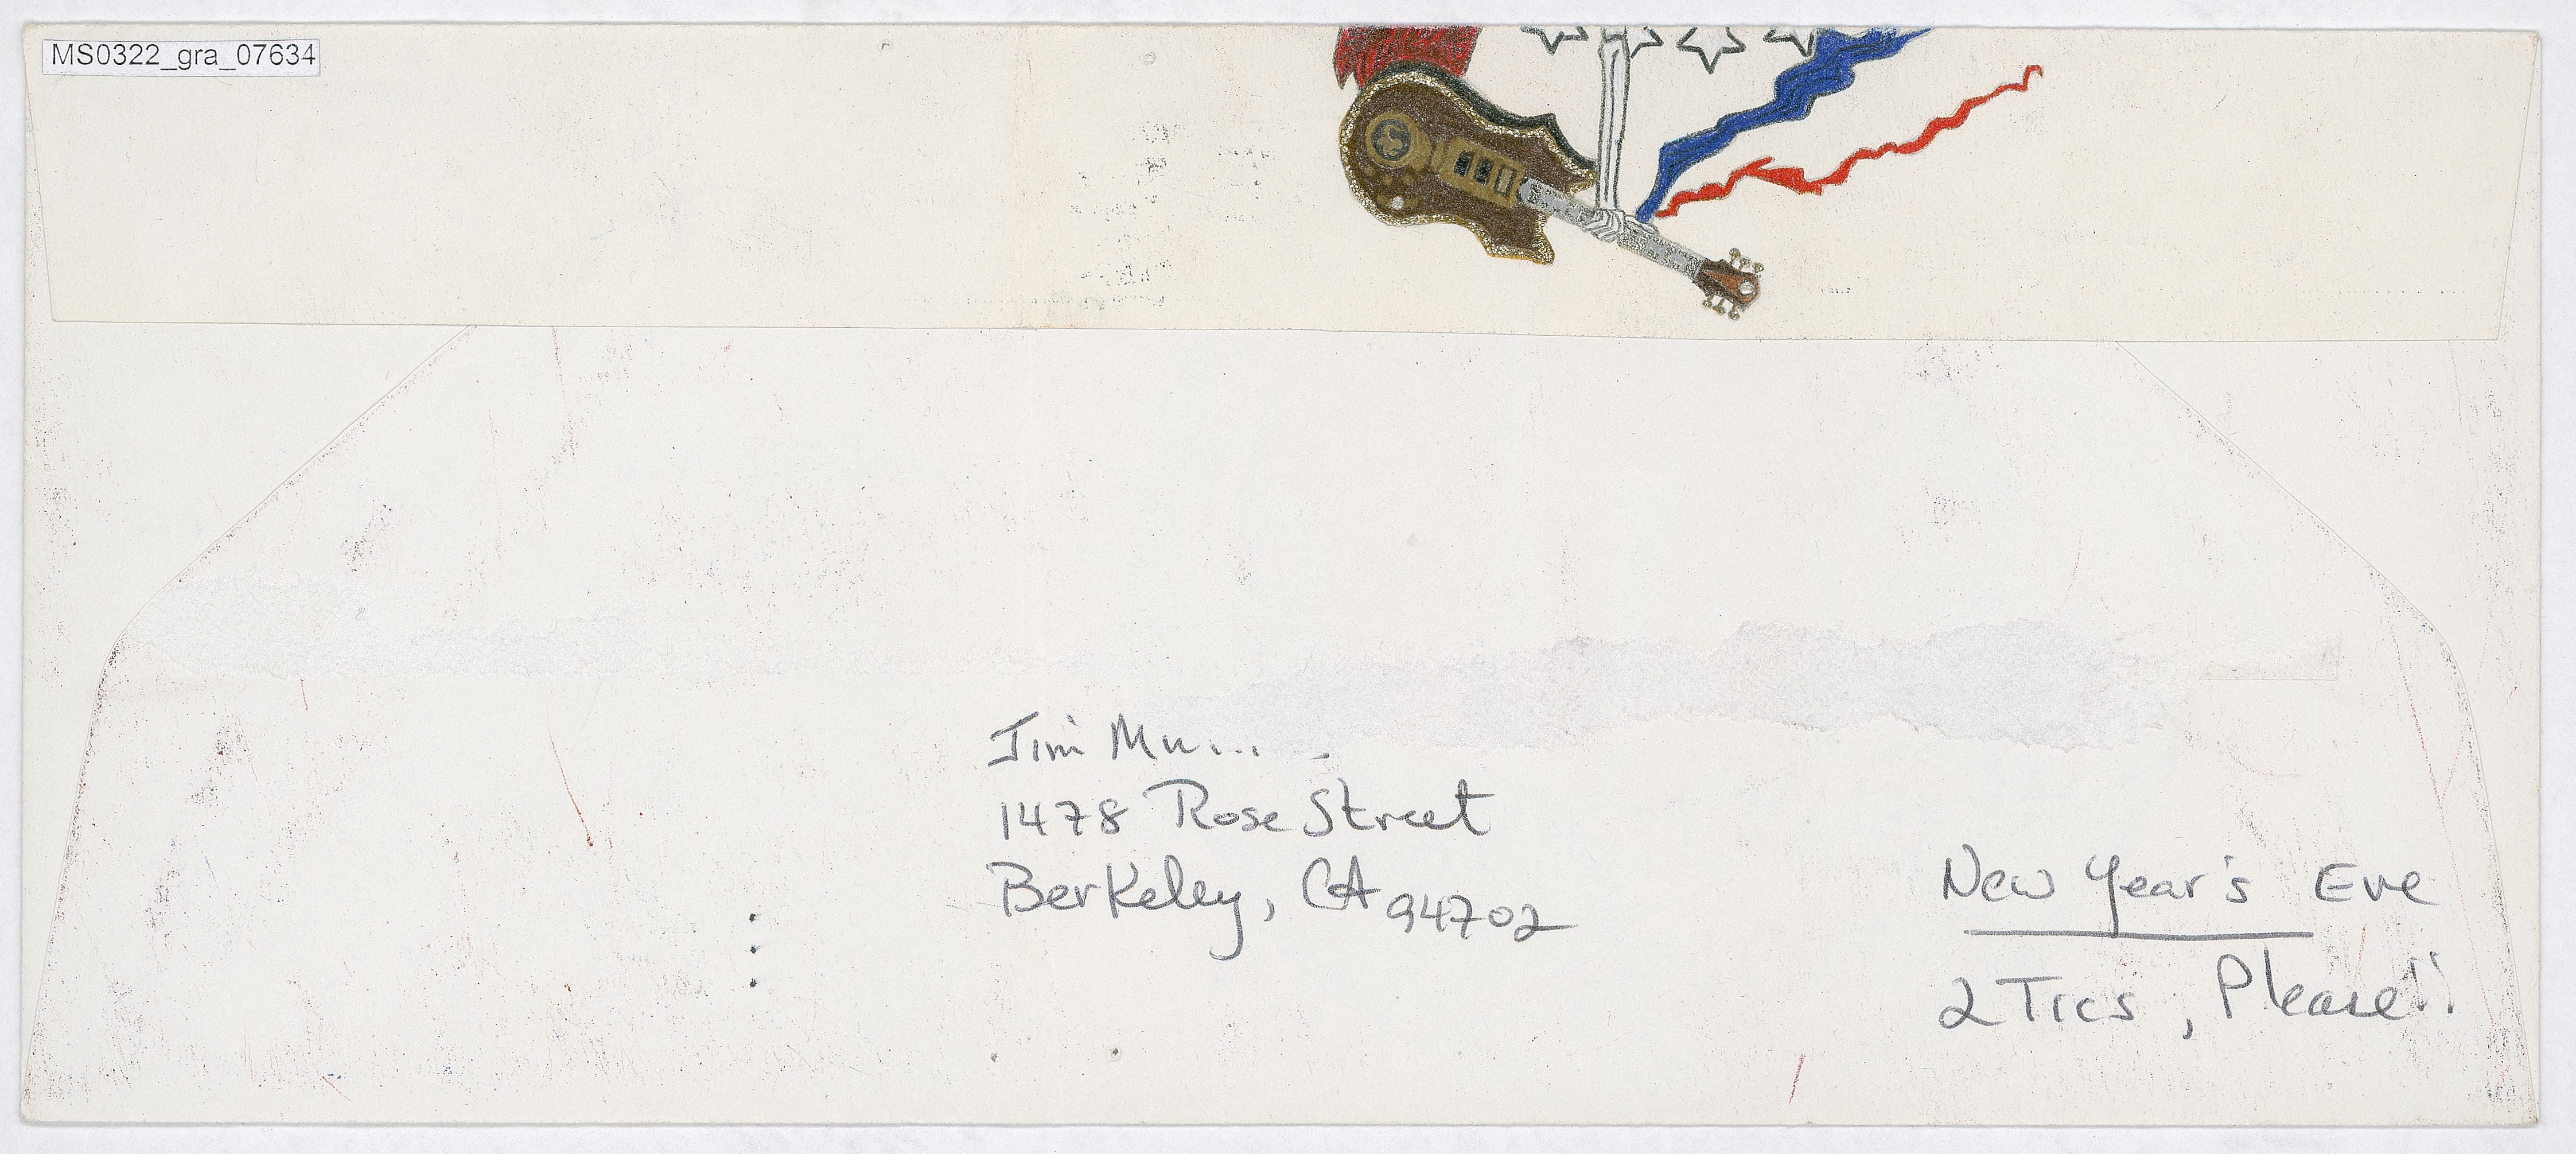 MS0322_gra_07634
Jim
1478 Rose Street
Berkeley, CA 94702
New Year's Eve
2 Tics, Please!!